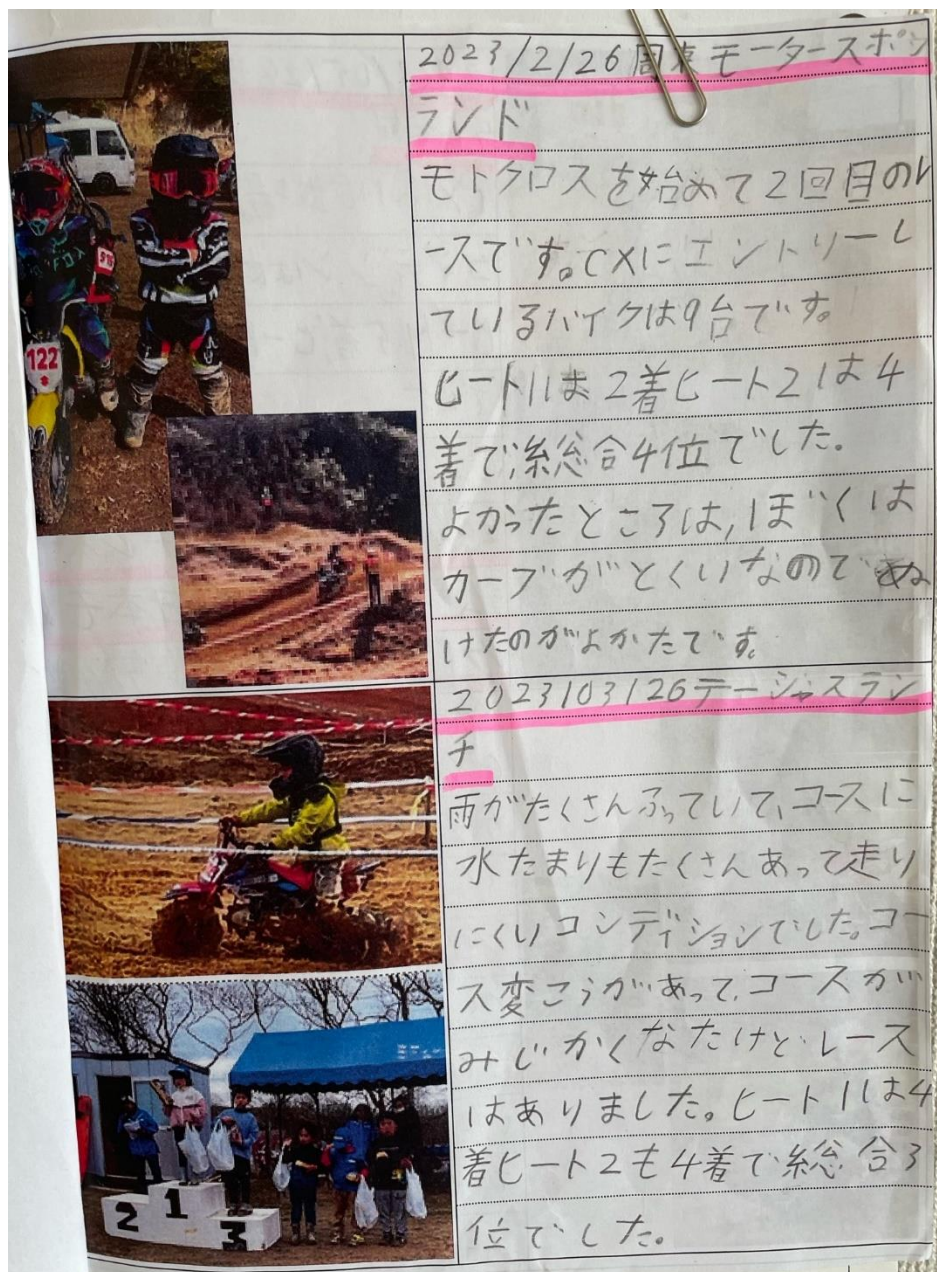 2023/2/26周東モータースポーツ
ランド
モトクロスを始めて2回目のレ
ースです。CXにエントリーし
ているバイクは9台です。
ヒート1は2着ヒート2は4
着で、総合4位でした。
よかったところは、ぼくは
カーブがとくいなのでぬ
けたのがよかたです。
2023/03/26テージャスラン
チ
雨がたくさんふっていて、コースに
水たまりもたくさんあって走り
にくいコンディションでした。コー
ス変こうがあって、コースが
みじかくなたけどレース
はありました。ヒート1は4
着ヒート2も4着で総合3
位でした。
122
915
FOX
2
1
3